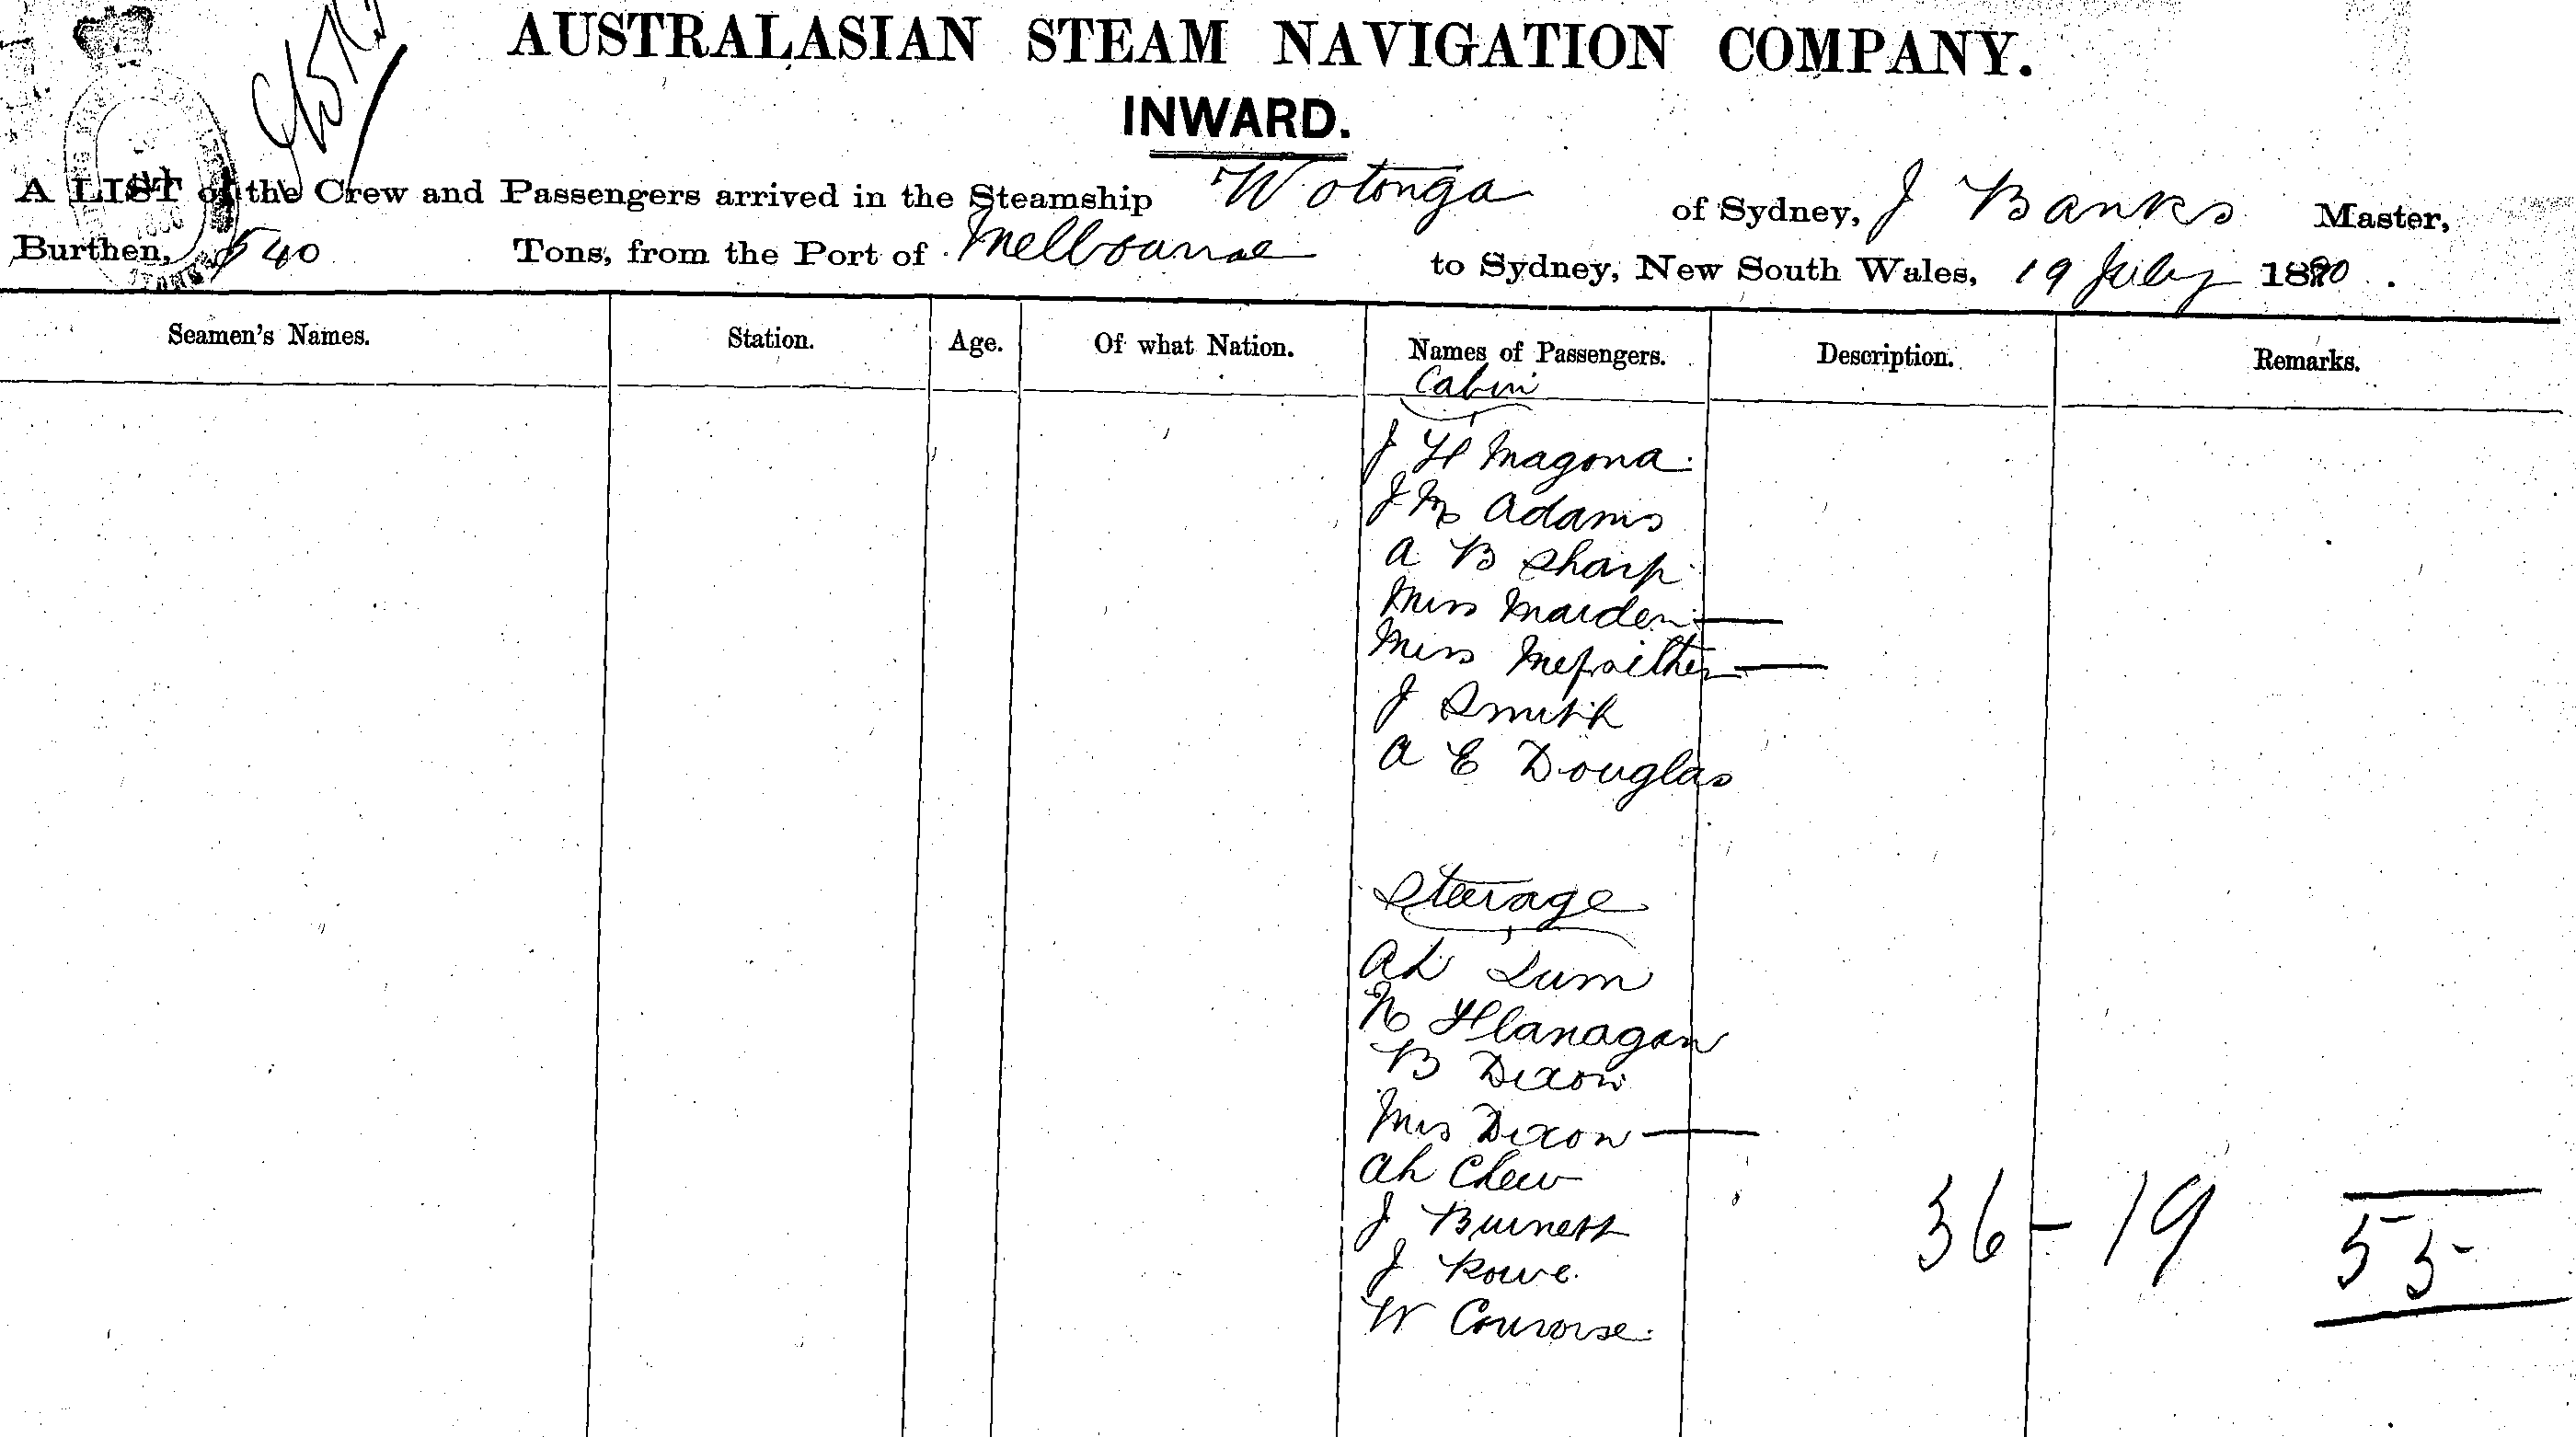 AUSTRALASIAN STEAM NAVIGATION COMPANY.
INWARD.
A LIST of the Crew and Passengers arrived in the Steamship Wotonga of Sydney, J Banks Master,
Burthen, 540 Tons, from the Port of Melbourne to Sydney, New South Wales, 19 July 1880.
Seamen's Names. Station. Age. Of what Nation. Names of Passengers. Description. Remarks.
Cabin
J H Magona
J M Adams
A B Sharp
Miss Marden
Miss
J Smith
A E Douglas
Steerage
Ah Lum
N Flanagan
B Dixon
Mrs Dixon
Ah Chew
J Burnett
J Rowe
W
36 - 19 55